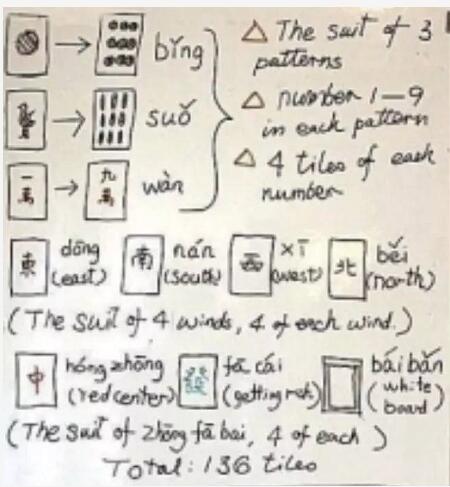 bǐng
suǒ
一萬 九萬 wàn
△ The suit of 3
patterns
△ number 1—9
in each pattern
△ 4 tiles of each
number
東 dōng (east) 南 nán (south) 西 xī (west) 北 běi (north)
(The suit of 4 winds, 4 of each wind.)
中 hóng zhōng (red center) 發 fā cái (getting rich) bái bǎn (white board)
(The suit of zhōng fā bai, 4 of each)
Total: 136 tiles